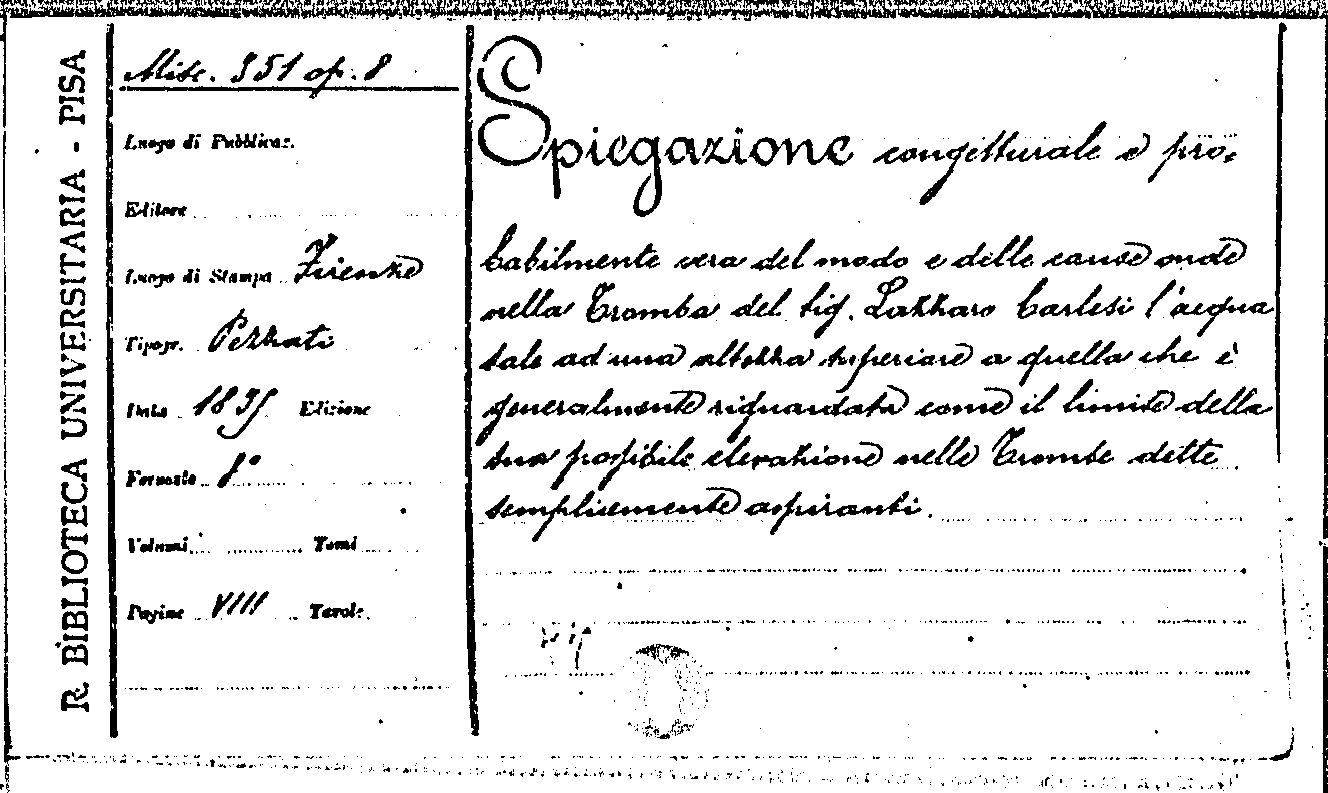 R. BIBLIOTECA UNIVERSITARIA - PISA
Misc. 351 op. 8
Luogo di Pubblicaz.
Editore
Luogo di Stampa Firenze
Tipogr. Pezzati
Data 1835 Edizione
Formato 8°
Volumi Tomi
Pagine VIII Tavole
Spiegazione congetturale e pro-
babilmente vera del modo e delle cause onde
nella Tromba del Sig. Lazzaro Carlesi l'acqua
sale ad una altezza superiore a quella che è
generalmente riguardata come il limite della
sua possibile elevazione nelle Trombe dette
semplicemente aspiranti.